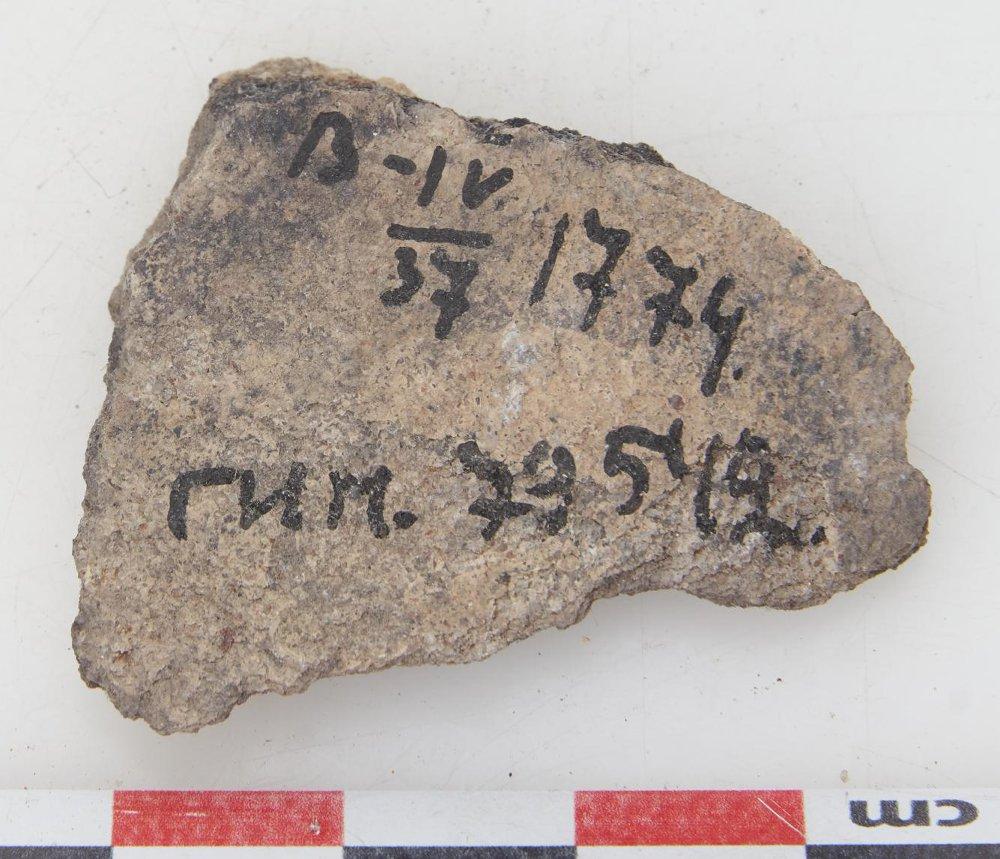 В-IV
37 1774.
ГИМ. 79519.
cm